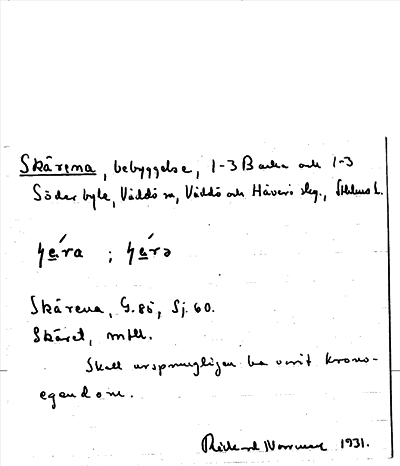 Skärena, bebyggelse, 1-3 Backa och 1-3
Söderbyle, Väddö sn, Väddö och Häverö skg., Sthlms l.
ɧe̲ʹra ; ɧa̲ʹrə
Skärena, G.85, Sj. 60.
Skäret, mtll.
Skall ursprungligen ha varit krono-
egendom.
Rickard 1931.